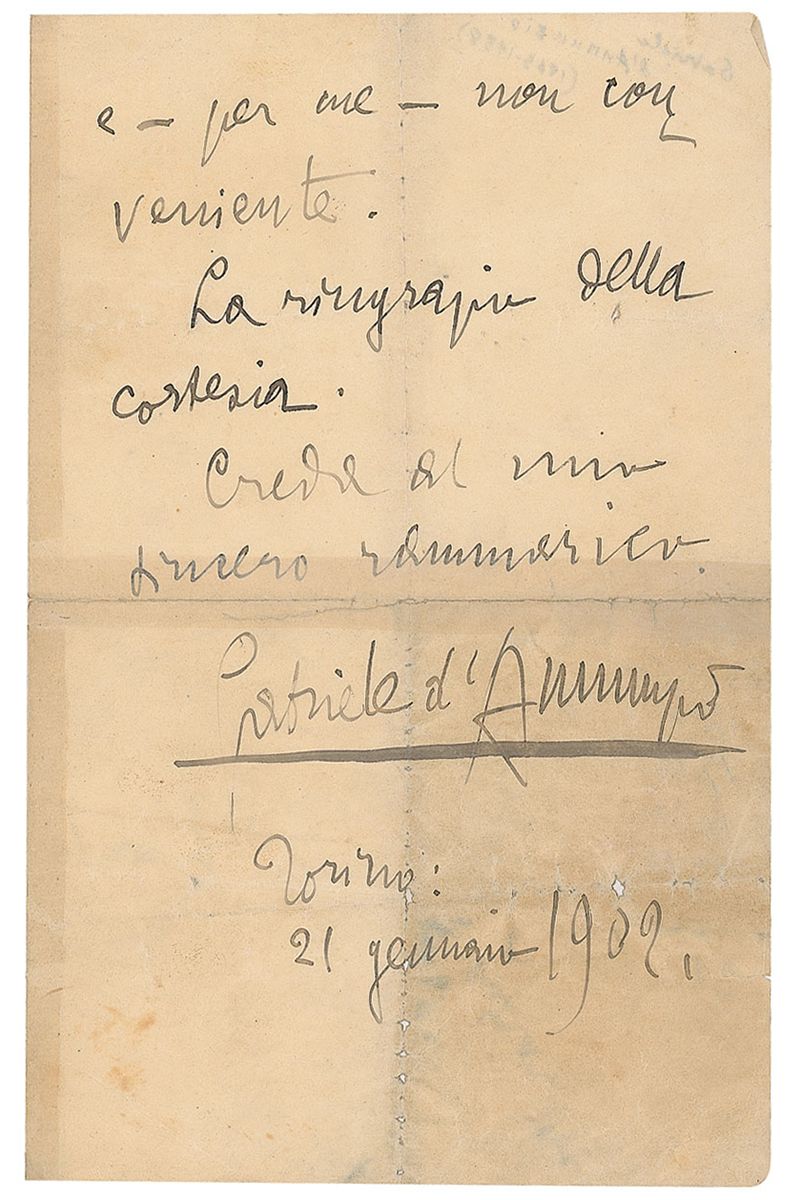 e — per me — non con
veniente.
La ringrazio della
cortesia.
Creda al mio
sincero rammarico.
Gabriele d'Annunzio
Torino:
21 gennaio 1902.